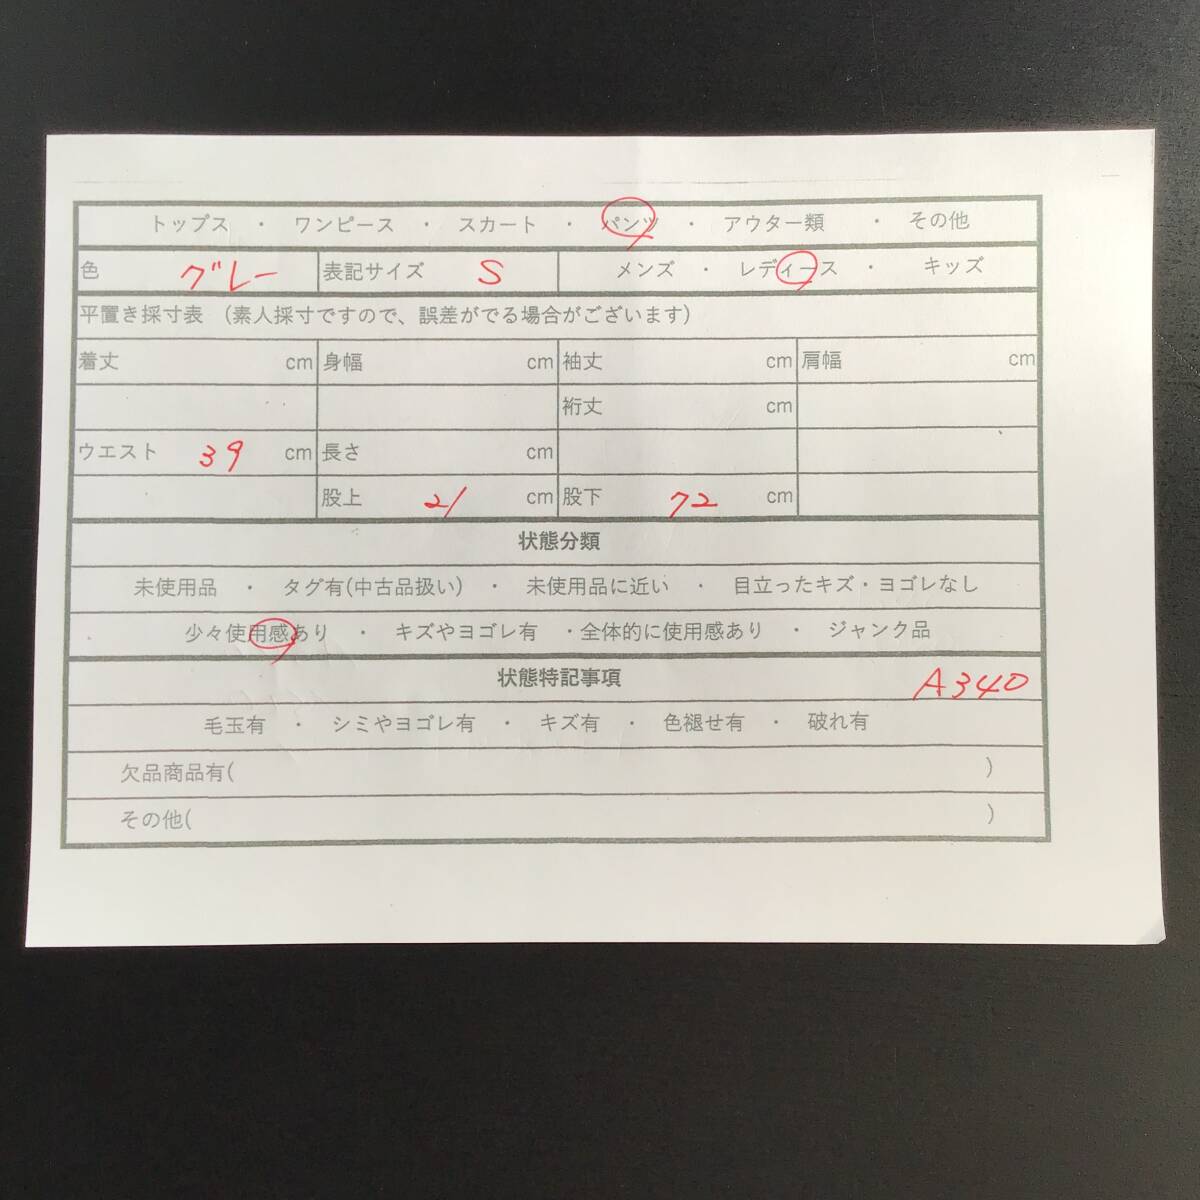 トップス ・ ワンピース ・ スカート ・ パンツ ・ アウター類 ・ その他
色 グレー 表記サイズ S メンズ ・ レディース ・ キッズ
平置き採寸表 (素人採寸ですので、誤差がでる場合がございます)
着丈 cm 身幅 cm 袖丈 cm 肩幅 cm
裄丈 cm
ウエスト 39 cm 長さ cm
股上 21 cm 股下 72 cm
状態分類
未使用品 ・ タグ有(中古品扱い) ・ 未使用品に近い ・ 目立ったキズ・ヨゴレなし
少々使用感あり ・ キズやヨゴレ有 ・全体的に使用感あり ・ ジャンク品
状態特記事項 A340
毛玉有 ・ シミやヨゴレ有 ・ キズ有 ・ 色褪せ有 ・ 破れ有
欠品商品有( )
その他( )